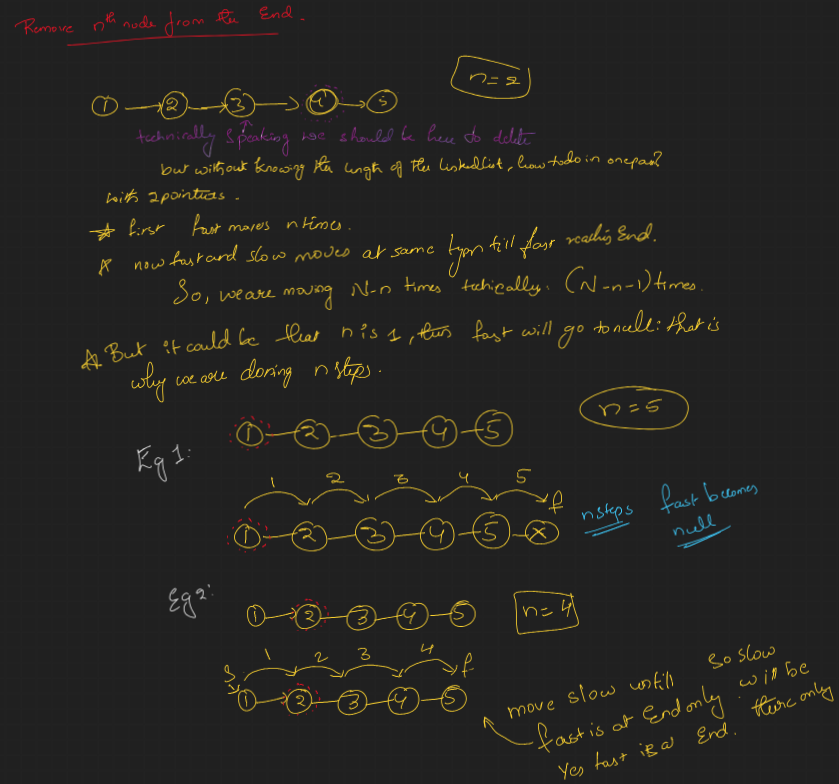 Remove nth node from the End.
n=2
1 2 3 4 5
technically speaking we should be here to delete
but without knowing the length of the linkedlist, how to do in one pass?
with 2 pointers.
first fast moves n times.
now fast and slow moves at same till fast reaching End.
So, we are moving N-n times technically. (N-n-1) times.
But it could be that n is 1, fast will go to null: that is
why we are doning n steps.
n=5
1 2 3 4 5
Eg 1:
1 2 3 4 5
f
1 2 3 4 5 x
n steps fast becomes
null
Eg 2:
1 2 3 4 5
n=4
1 2 3 4
S f
1 2 3 4 5
move slow until So slow
fast is at End only will be
Yes fast is at End. there only